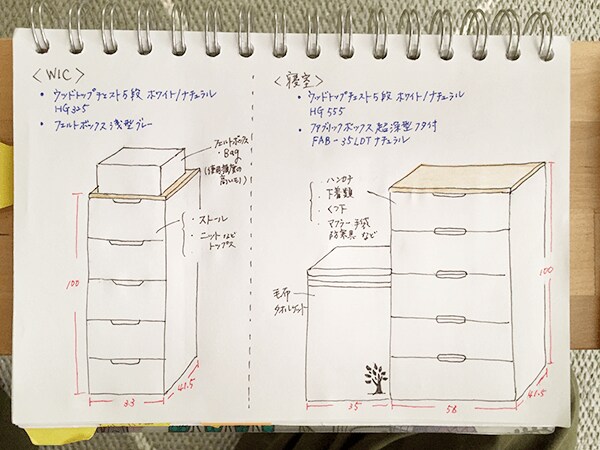 〈WIC〉
・ウッドトップチェスト5段 ホワイト/ナチュラル
HG325
・フェルトボックス浅型グレー
フェルトボックス
・Bag
(使用頻度の
高いもの)
・ストール
・ニットなど
トップス
100
33
41.5
〈寝室〉
・ウッドトップチェスト5段 ホワイト/ナチュラル
HG555
・ファブリックボックス超深型フタ付
FAB-35LDTナチュラル
・ハンカチ
・下着類
・くつ下
・マフラー 手袋
防寒具 など
毛布
タオルケット
100
35
56
41.5